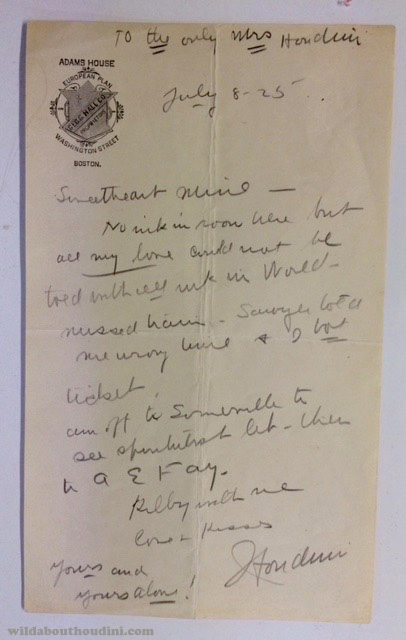 TO the only Mrs Houdini
ADAMS HOUSE
EUROPEAN PLAN
GEO. G. HALL CO.
PROPRIETOR
WASHINGTON STREET
BOSTON.
July 8-25.
Sweetheart Mine —
No ink in room here but
all my love could not be
told with all ink in World -
missed train - Sawyer told
me wrong time & I lost
ticket.
am off to Somerville to
see spiritist - then
to A E Fay.
Kilby with me
Love & Kisses
Houdini
yours and
yours alone!
wildabouthoudini.com